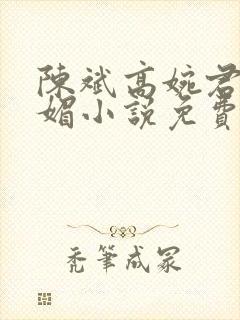 陳斌高婉君
媚小說免費
禿筆成冢